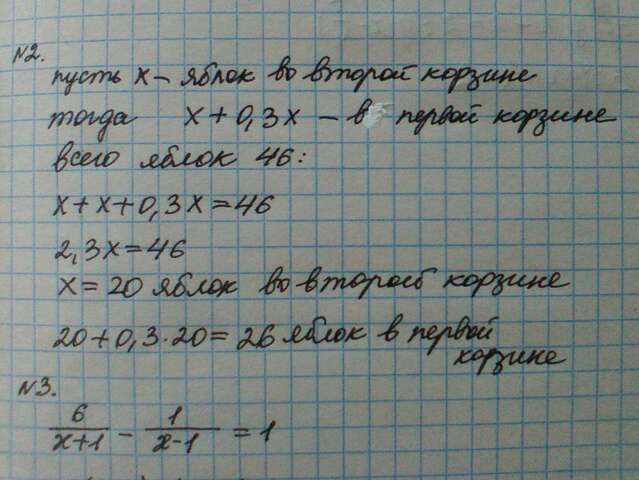 №2.
пусть х – яблок во второй корзине
тогда х + 0,3х – в первой корзине
всего яблок 46:
х + х + 0,3х = 46
2,3х = 46
х = 20 яблок во второй корзине
20 + 0,3 · 20 = 26 яблок в первой
корзине
№3.
6/(х+1) – 1/(х-1) = 1